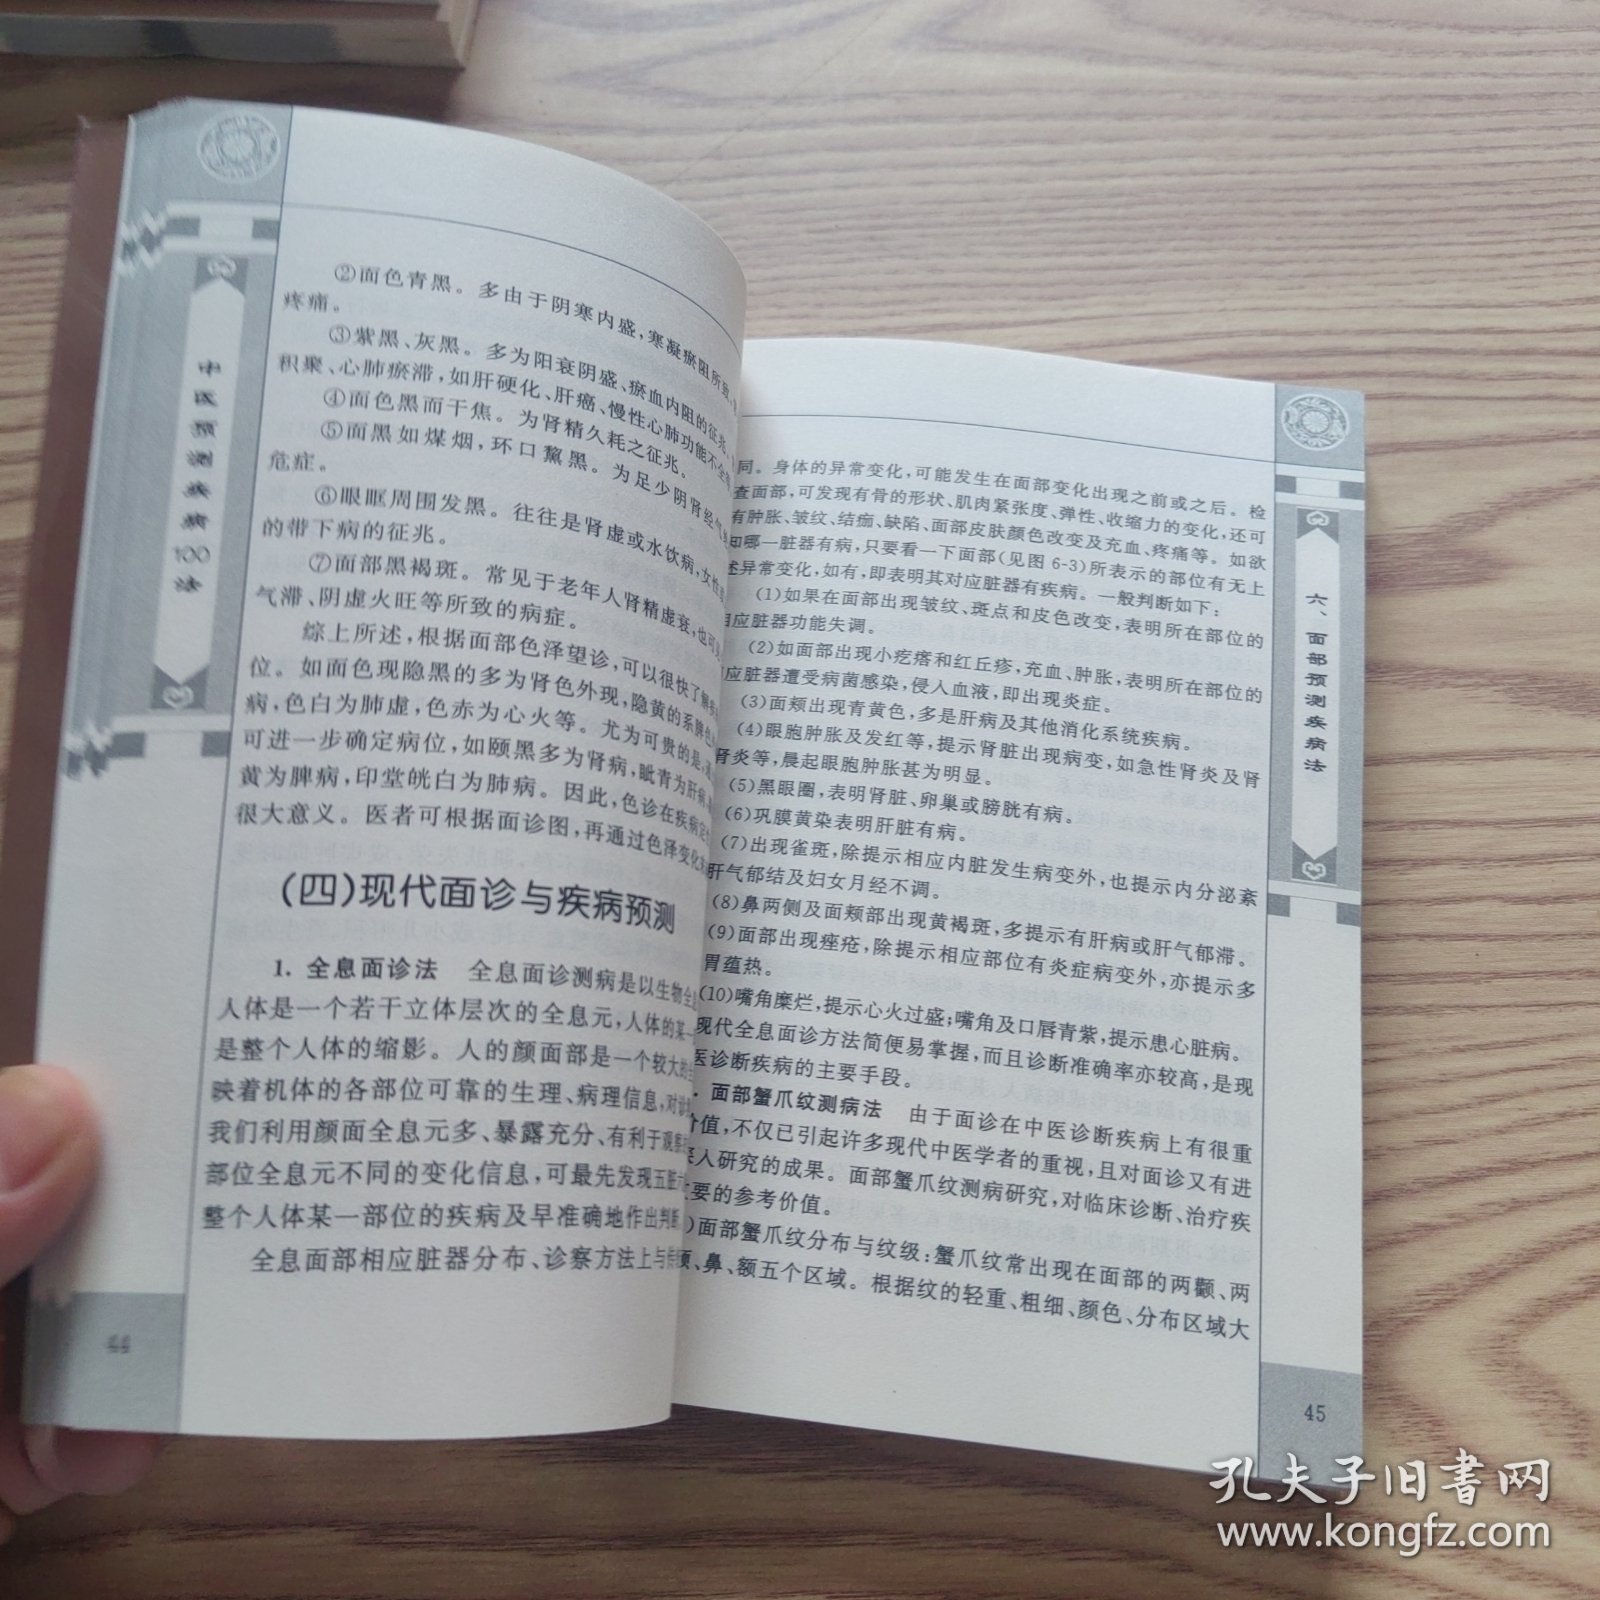 中医预测疾病100法
②面色青黑。多由于阴寒内盛,寒凝瘀阻所致,
疼痛。
③紫黑、灰黑。多为阳衰阴盛、瘀血内阻的征兆。
积聚、心肺瘀滞,如肝硬化、肝癌、慢性心肺功能不全
④面色黑而干焦。为肾精久耗之征兆。
⑤面黑如煤烟,环口黧黑。为足少阴肾经气
危症。
⑥眼眶周围发黑。往往是肾虚或水饮病,女性
的带下病的征兆。
⑦面部黑褐斑。常见于老年人肾精虚衰,也可
气滞、阴虚火旺等所致的病症。
综上所述,根据面部色泽望诊,可以很快了解
位。如面色现隐黑的多为肾色外现,隐黄的系脾色
病,色白为肺虚,色赤为心火等。尤为可贵的是,
可进一步确定病位,如颐黑多为肾病,眦青为肝病,
黄为脾病,印堂㿠白为肺病。因此,色诊在疾病定
很大意义。医者可根据面诊图,再通过色泽变化
(四)现代面诊与疾病预测
1. 全息面诊法 全息面诊测病是以生物全
人体是一个若干立体层次的全息元,人体的某一
是整个人体的缩影。人的颜面部是一个较大的
映着机体的各部位可靠的生理、病理信息,对诊
我们利用颜面全息元多、暴露充分、有利于观察
部位全息元不同的变化信息,可最先发现五脏
整个人体某一部位的疾病及早准确地作出判断。
全息面部相应脏器分布、诊察方法上与传
44
同。身体的异常变化,可能发生在面部变化出现之前或之后。检
查面部,可发现有骨的形状、肌肉紧张度、弹性、收缩力的变化,还可
有肿胀、皱纹、结痂、缺陷、面部皮肤颜色改变及充血、疼痛等。如欲
知哪一脏器有病,只要看一下面部(见图 6-3)所表示的部位有无上
述异常变化,如有,即表明其对应脏器有疾病。一般判断如下:
(1)如果在面部出现皱纹、斑点和皮色改变,表明所在部位的
相应脏器功能失调。
(2)如面部出现小疙瘩和红丘疹,充血、肿胀,表明所在部位的
应脏器遭受病菌感染,侵入血液,即出现炎症。
(3)面颊出现青黄色,多是肝病及其他消化系统疾病。
(4)眼胞肿胀及发红等,提示肾脏出现病变,如急性肾炎及肾
肾炎等,晨起眼胞肿胀甚为明显。
(5)黑眼圈,表明肾脏、卵巢或膀胱有病。
(6)巩膜黄染表明肝脏有病。
(7)出现雀斑,除提示相应内脏发生病变外,也提示内分泌紊
肝气郁结及妇女月经不调。
(8)鼻两侧及面颊部出现黄褐斑,多提示有肝病或肝气郁滞。
(9)面部出现痤疮,除提示相应部位有炎症病变外,亦提示多
胃蕴热。
(10)嘴角糜烂,提示心火过盛;嘴角及口唇青紫,提示患心脏病。
现代全息面诊方法简便易掌握,而且诊断准确率亦较高,是现
医诊断疾病的主要手段。
面部蟹爪纹测病法 由于面诊在中医诊断疾病上有很重
价值,不仅已引起许多现代中医学者的重视,且对面诊又有进
人研究的成果。面部蟹爪纹测病研究,对临床诊断、治疗疾
要的参考价值。
)面部蟹爪纹分布与纹级:蟹爪纹常出现在面部的两颧、两
颊、鼻、额五个区域。根据纹的轻重、粗细、颜色、分布区域大
六、面部预测疾病法
45
孔夫子旧书网
www.kongfz.com